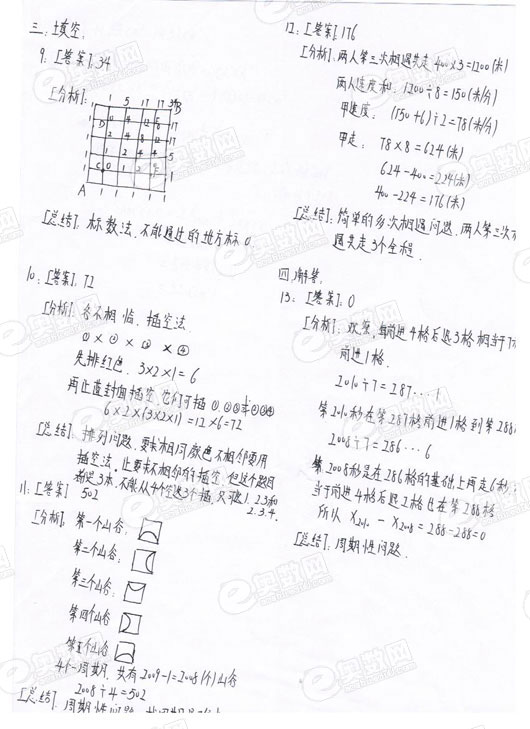 三、填空.
9. [答案]: 34
[分析]:
1 5 17 17 34 B
1 D 0 4 12 0 17
1 4 8 12 17
1 2 4 4 5
1 C 0 1 2 1
A 1 1 1 1
[总结]. 标数法. 不能通过的地方标0.
10. [答案]: 72
[分析]: 各不相临. 插空法
① × ② × ③ × ④
先排红色. 3×2×1=6
再让蓝封面插空. 它们可插①.②.③或②③④
6×2×(3×2×1)=12×6=72
[总结]: 排列问题. 要求相同颜色不相邻要用
插空法.
只可选1.2.3和
2.3.4.
11. [答案] 502
[分析]. 第一个山谷:
第二个山谷:
第三个山谷:
第四个山谷
第五个山谷
4个一周期. 共有2009-1=2008(个)山谷
2008÷4=502
[总结]. 周期性问题.
12. [答案]: 176
[分析]. 两人第三次相遇共走400×3=1200(米)
两人速度和: 1200÷8=150(米/分)
甲速度: (150+6)÷2=78(米/分)
甲走: 78×8=624(米)
624-400=224(米)
400-224=176(米)
[总结]: 简单的多次相遇问题. 两人第三次
遇共走3个全程.
四. 解答.
13: [答案]: 0
[分析]. 欢欢. 每前进4格后退3格相当于7
前进1格.
2010÷7=287...1
第2010秒在第287格前进1格到第288
2008÷7=286...6
第2008秒是在286格的基础上再走6秒.
当于前进4格后退2格也在第288格
所以 X2010 - X2008=288-288=0
[总结]: 周期性问题.
e奥数网